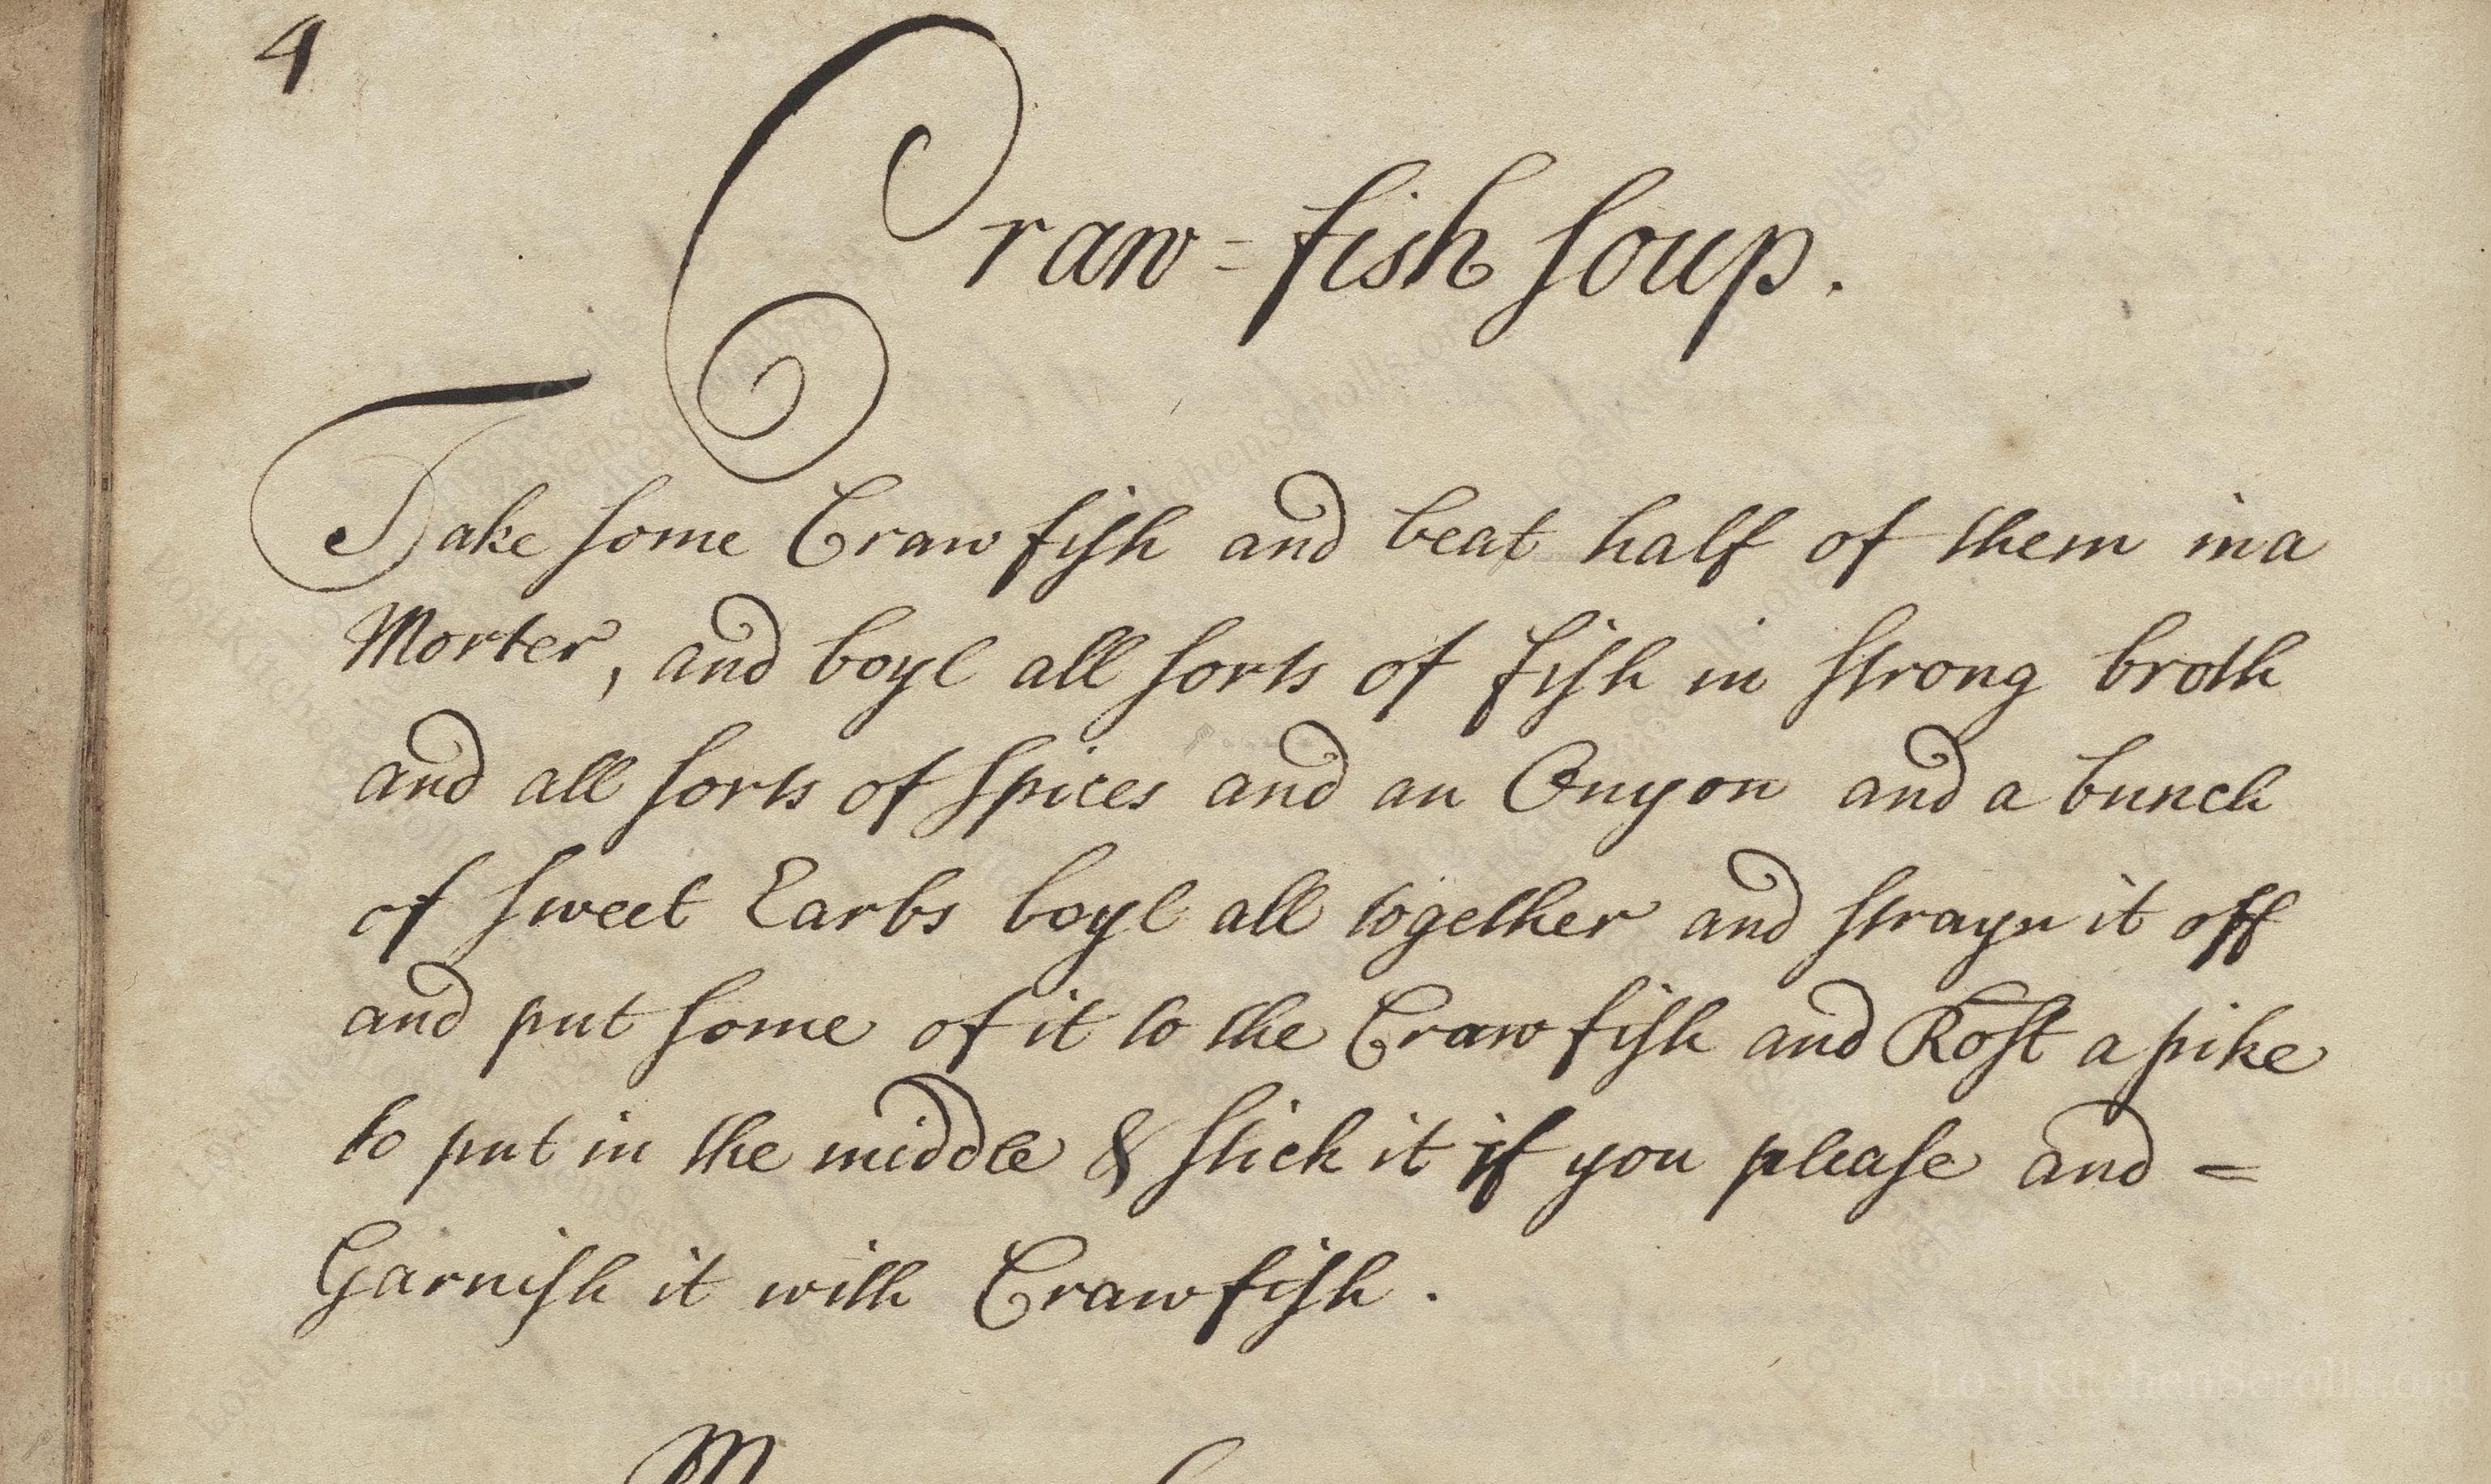 4
Craw=fish soup.
Take some Craw fish and beat half of them in a
Morter, and boyl all sorts of fish in strong broth
and all sorts of spices and an Onyon and a bunch
of sweet Earbs boyl all together and strayn it off
and put some of it to the Craw fish and Rost a pike
to put in the middle & stick it if you please and =
Garnish it with Crawfish.
LostKitchenScrolls.org